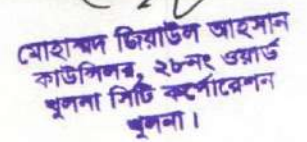 মোহাম্মদ জিয়াউল আহসান
কাউন্সিলর, ২৮নং ওয়ার্ড
খুলনা সিটি কর্পোরেশন
খুলনা।